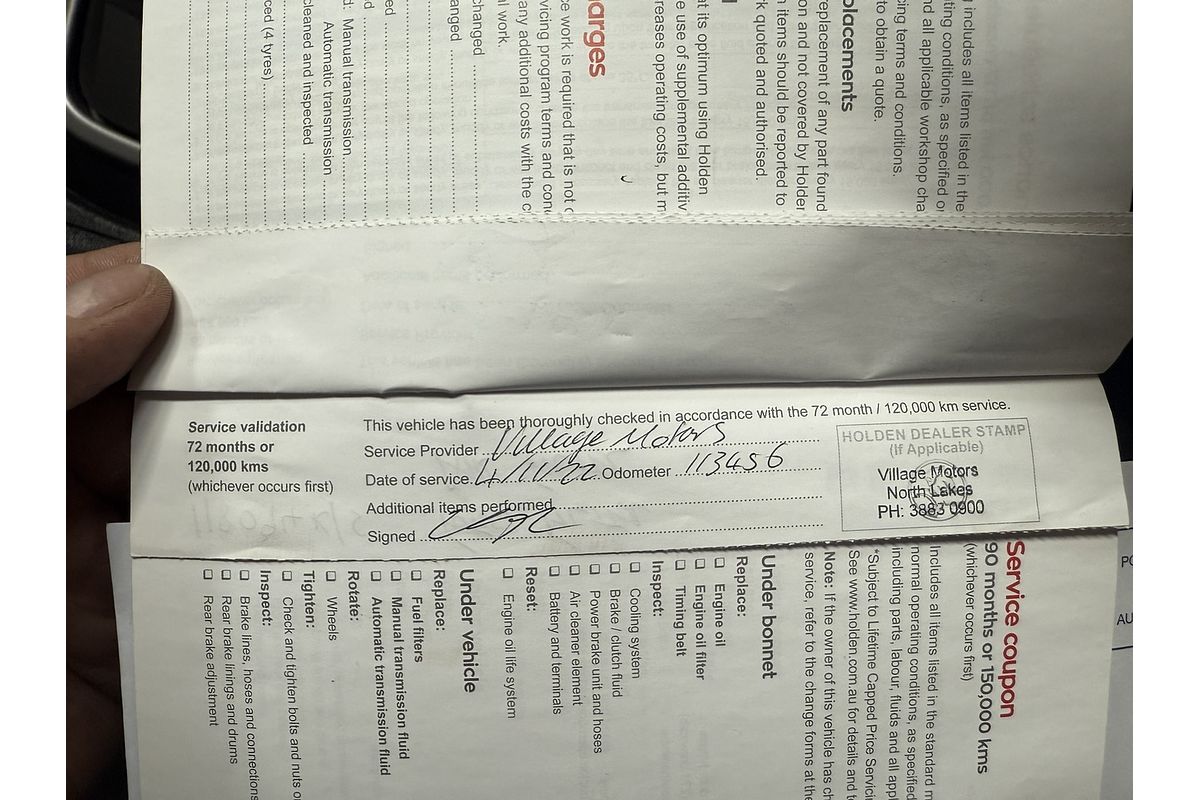 g includes all items listed in the
ting conditions, as specified o
nd all applicable workshop cha
cing terms and conditions.
to obtain a quote.
placements
replacement of any part found
on and not covered by Holden
items should be reported to
k quoted and authorised.
t its optimum using Holden
e use of supplemental additiv
reases operating costs, but m
arges
ce work is required that is not c
vicing program terms and con
any additional costs with the c
l work.
changed
anged
d: Manual transmission
Automatic transmission
cleaned and inspected
ced (4 tyres)
Service validation
72 months or
120,000 kms
(whichever occurs first)
This vehicle has been thoroughly checked in accordance with the 72 month / 120,000 km service.
Service Provider Village Motors
Date of service 4/11/22 Odometer 113456
Additional items performed
Signed
HOLDEN DEALER STAMP
(If Applicable)
Village Motors
North Lakes
PH: 3883 0900
Service coupon
90 months or 150,000 kms
(whichever occurs first)
Includes all items listed in the standard m
normal operating conditions, as specified
including parts, labour, fluids and all appl
*Subject to Lifetime Capped Price Servicin
See www.holden.com.au for details and t
Note: If the owner of this vehicle has ch
service, refer to the change forms at the
Under bonnet
Replace:
Engine oil
Engine oil filter
Timing belt
Inspect:
Cooling system
Brake / clutch fluid
Power brake unit and hoses
Air cleaner element
Battery and terminals
Reset:
Engine oil life system
Under vehicle
Replace:
Fuel filters
Manual transmission fluid
Automatic transmission fluid
Rotate:
Wheels
Tighten:
Check and tighten bolts and nuts o
Inspect:
Brake lines, hoses and connections
Rear brake linings and drums
Rear brake adjustment
PO
AU